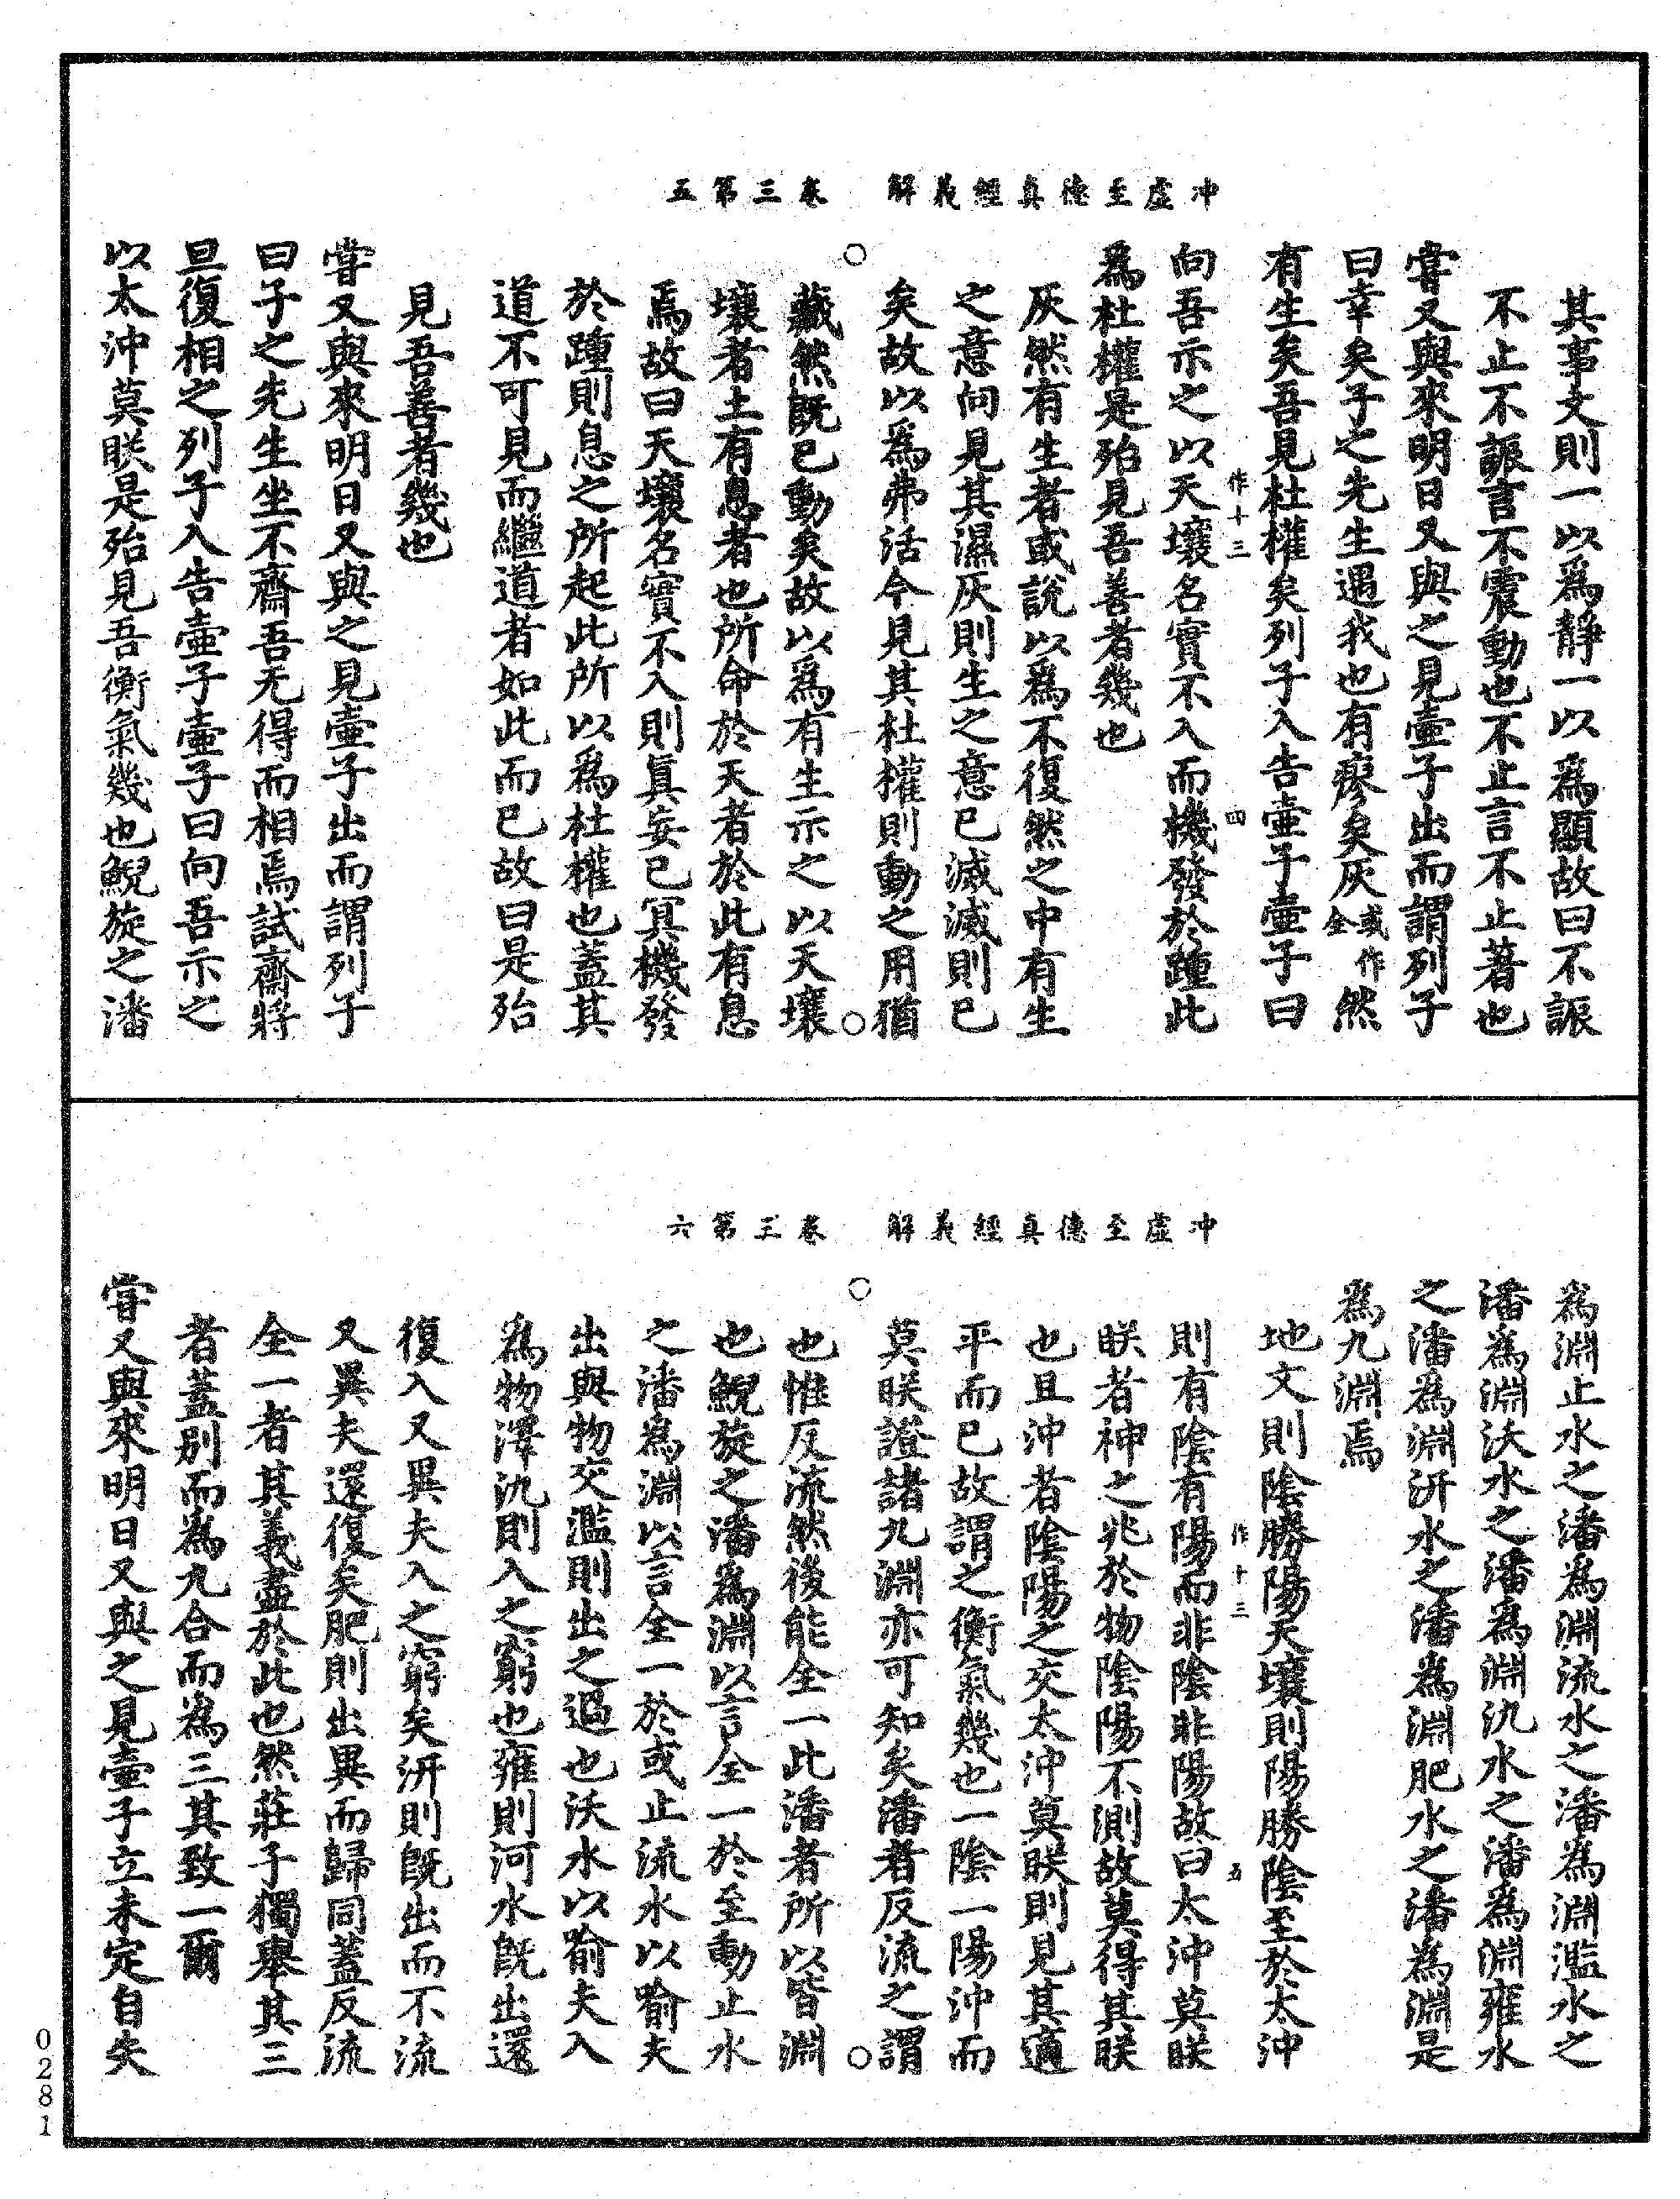 冲虛至德真經義解　卷三第五
其事文則一以為靜一以為顯故曰不誫
不止不誫言不震動也不止言不止著也
嘗又與來明日又與之見壷子出而謂列子
曰幸矣子之先生遇我也有瘳矣灰或作全然
有生矣吾見杜權矣列子入告壷子壷子曰
作十三　四
向吾示之以天壤名實不入而機發於踵此
為杜權是殆見吾善者幾也
灰然有生者或說以為不復然之中有生
之意向見其濕灰則生之意已滅滅則已
矣故以為弗活今見其杜權則動之用猶
藏然既已動矣故以為有生示之以天壤
壤者土有息者也所命於天者於此有息
焉故曰天壤名實不入則真妄已冥機發
於踵則息之所起此所以為杜權也蓋其
道不可見而繼道者如此而已故曰是殆
見吾善者幾也
嘗又與來明日又與之見壷子出而謂列子
曰子之先生坐不齋吾无得而相焉試齋將
且復相之列子入告壷子壷子曰向吾示之
以太沖莫眹是殆見吾衡氣幾也鯢旋之潘
冲虛至德真經義解　卷三第六
為淵止水之潘為淵流水之潘為淵濫水之
潘為淵沃水之潘為淵氿水之潘為淵雍水
之潘為淵汧水之潘為淵肥水之潘為淵是
為九淵焉
地文則陰勝陽天壤則陽勝陰至於太沖
作十三　五
則有陰有陽而非陰非陽故曰太沖莫眹
眹者神之兆於物陰陽不測故莫得其眹
也且沖者陰陽之交太沖莫眹則見其適
平而已故謂之衡氣幾也一陰一陽沖而
莫眹證諸九淵亦可知矣潘者反流之謂
也惟反流然後能全一此潘者所以皆淵
也鯢旋之潘為淵以言全一於至動止水
之潘為淵以言全一於或止流水以喻夫
出與物交濫則出之過也沃水以喻夫入
為物澤氿則入之窮也雍則河水既出還
復入又異夫入之窮矣汧則既出而不流
又異夫還復矣肥則出異而歸同蓋反流
全一者其義盡於此也然莊子獨舉其三
者蓋別而為九合而為三其致一爾
嘗又與來明日又與之見壷子立未定自失
0281